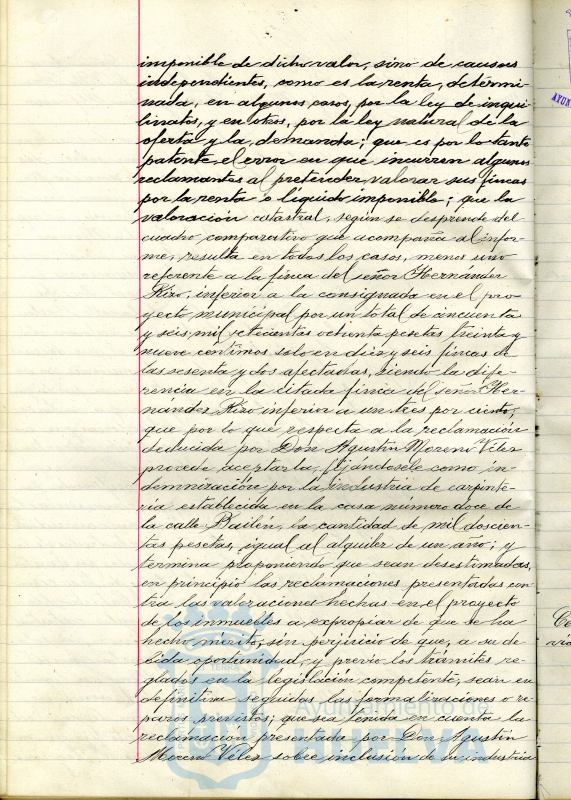 imponible de dicho valor, sino de causas
independientes, como es la renta, determi-
nada, en algunos casos, por la ley de inqui-
linatos, y en otros, por la ley natural de la
oferta y la demanda; que es por lo tanto
patente el error en que incurren algunos
reclamantes al pretender valorar sus fincas
por la renta o líquido imponible; que la
valoración catastral, según se desprende del
cuadro comparativo que acompaña al infor-
me, resulta en todos los casos, menos uno
referente a la finca del señor Hernández
Rizo, inferior a la consignada en el pro-
yecto municipal por un total de cincuenta
y seis mil setecientas ochenta pesetas treinta y
nueve centimos solo en diez y seis fincas de
las sesenta y dos afectadas, siendo la dife-
rencia en la citada finca del señor Her-
nández Rizo inferior a un tres por ciento;
que por lo que respecta a la reclamación
deducida por Don Agustín Moreno Vélez
procede aceptarla, fijándosele como in-
demnización por la industria de carpinte-
ría establecida en la casa número doce de
la calle Bailén, la cantidad de mil doscien-
tas pesetas, igual al alquiler de un año; y
termina proponiendo que sean desestimadas,
en principio las reclamaciones presentadas con-
tra las valoraciones hechas en el proyecto
de los inmuebles a expropiar de que se ha
hecho mérito, sin perjuicio de que, a su de-
bida oportunidad, y previo los trámites re-
glados en la legislación competente, sean en
definitiva seguidas las formalizaciones o re-
paros previstos; que sea tenida en cuenta la
reclamación presentada por Don Agustín
Moreno Vélez sobre inclusión de su industria
Ayuntamiento de
HUELVA